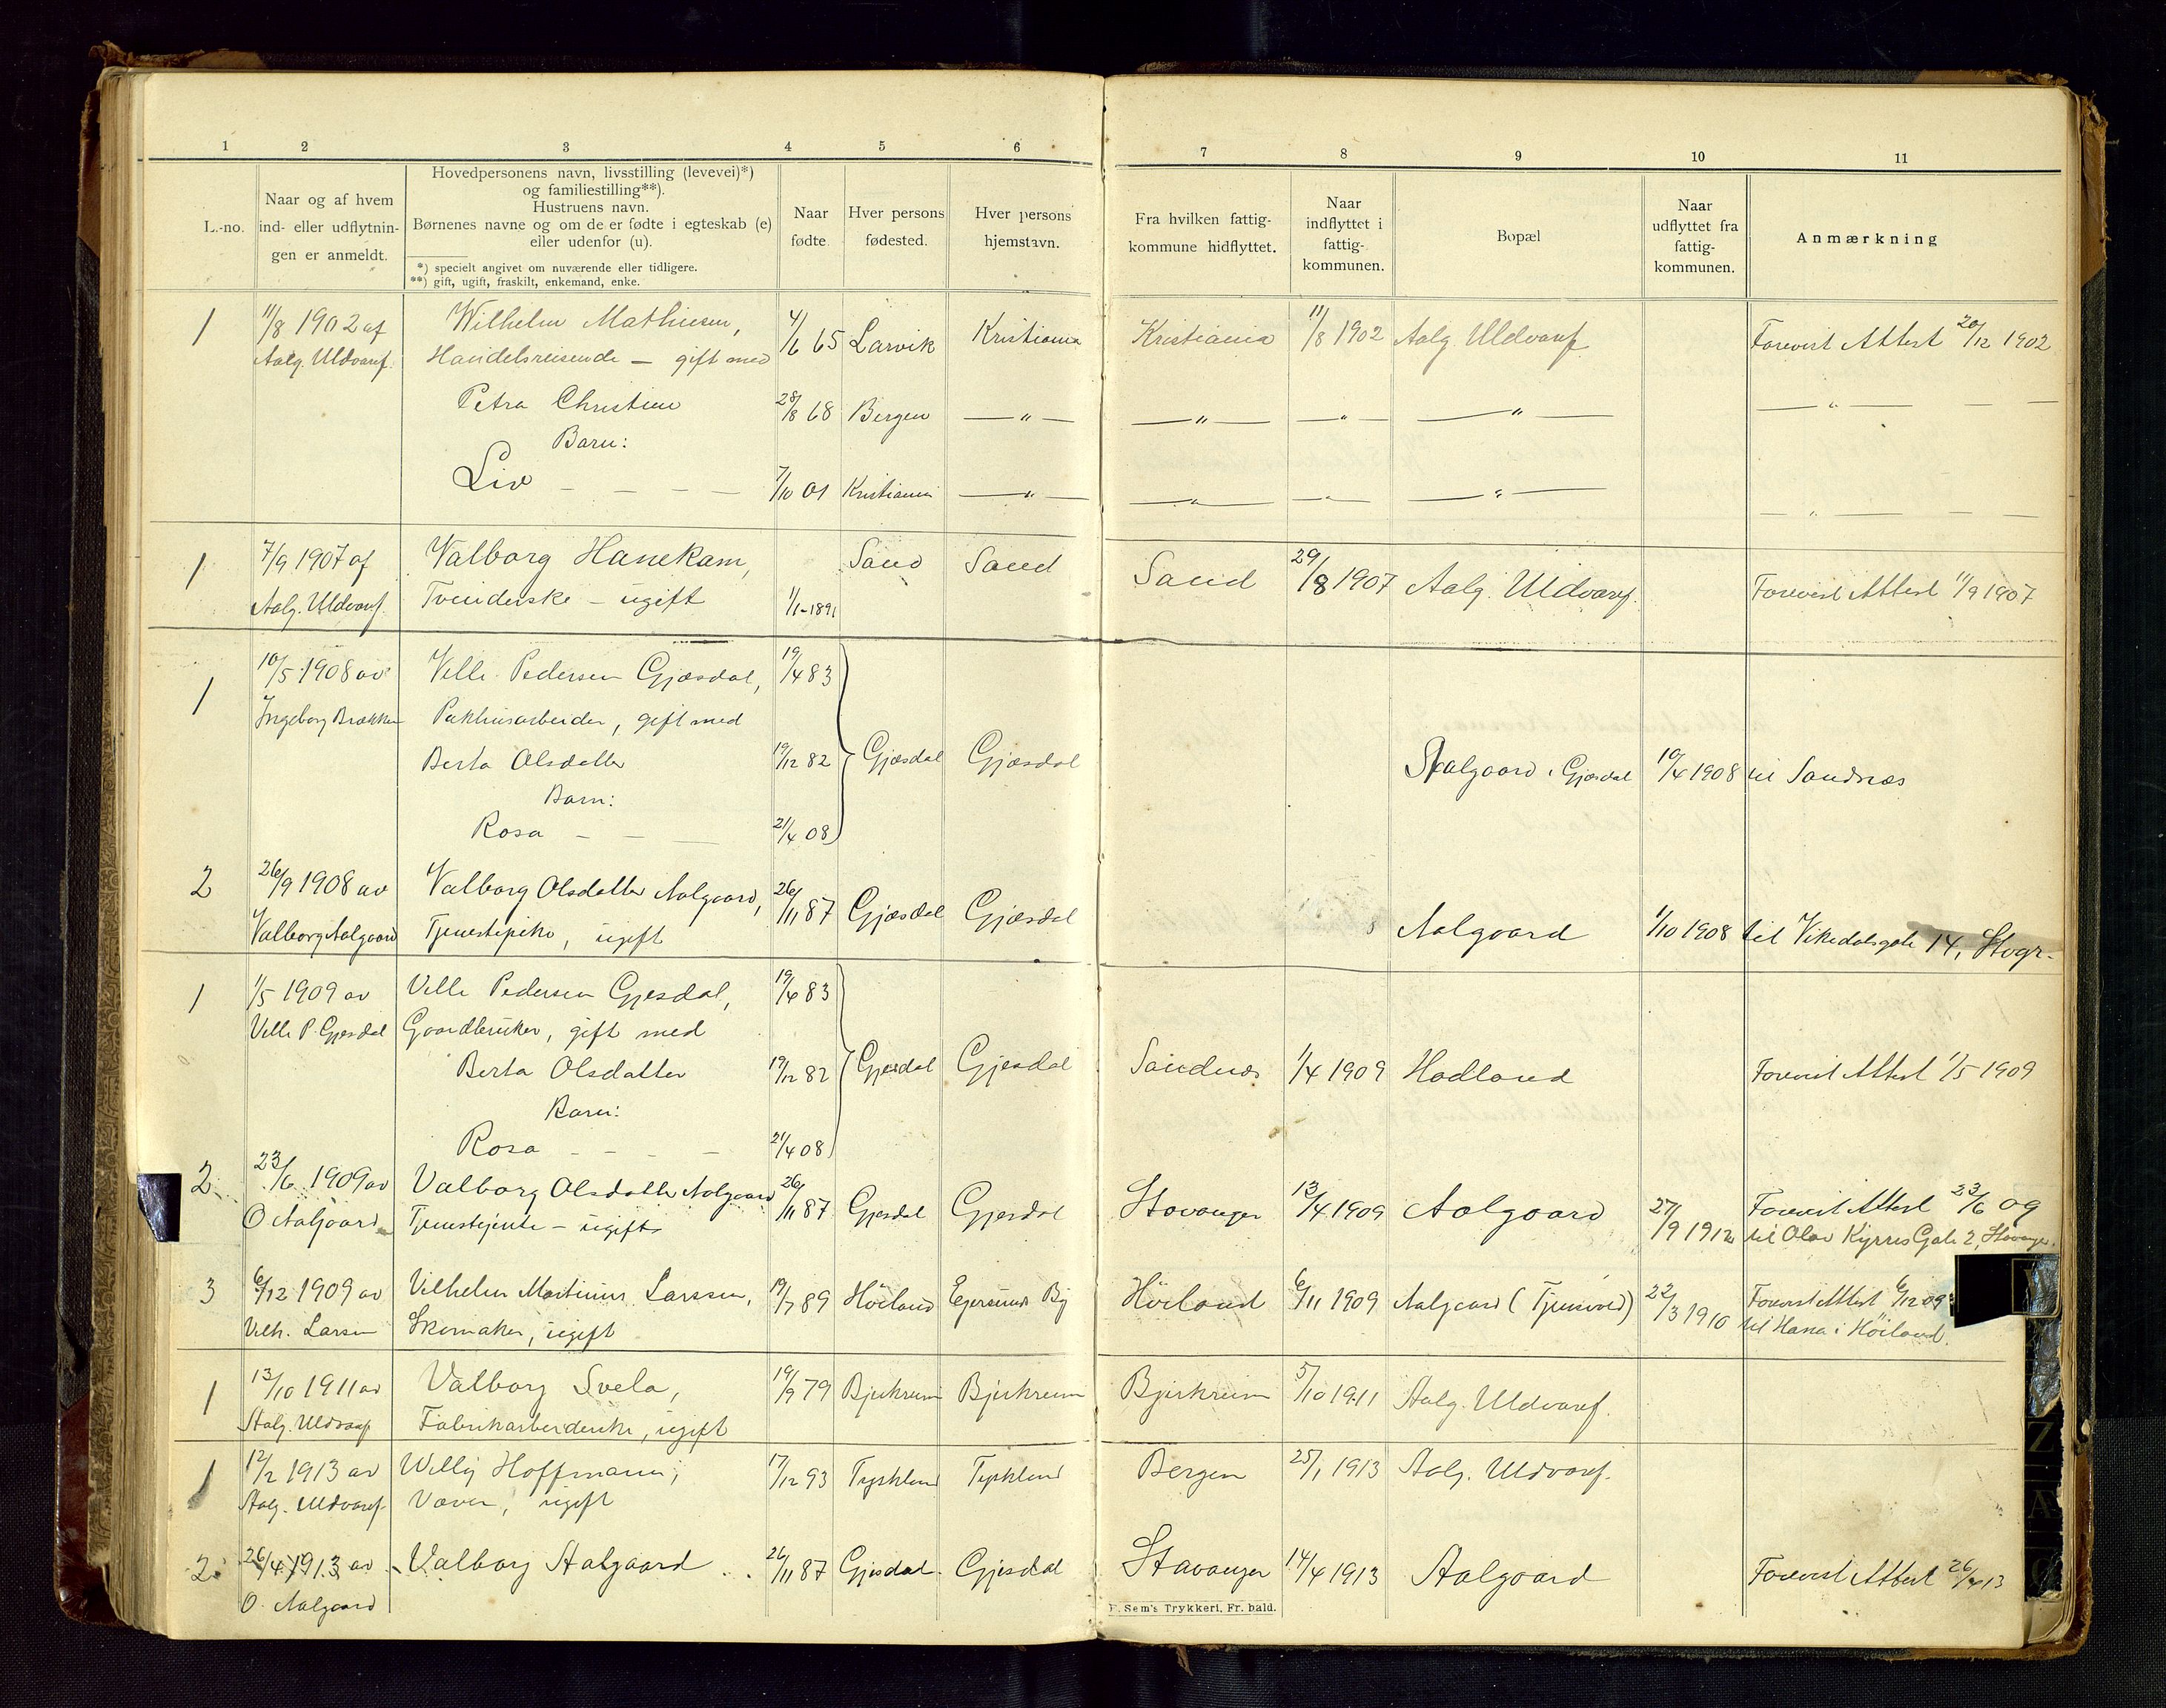 1 2 3 4 5 6 7 8 9 10 11
L.-no.
Naar og af hvem
ind- eller udflytnin-
gen er anmeldt.
Hovedpersonens navn, livsstilling (levevei)*)
og familiestilling**).
Hustruens navn.
Børnenes navne og om de er fødte i egteskab (e)
eller udenfor (u).
*) specielt angivet om nuværende eller tidligere.
**) gift, ugift, fraskilt, enkemand, enke.
Naar
fødte.
Hver persons
fødested.
Hver persons
hjemstavn.
Fra hvilken fattig-
kommune hidflyttet.
Naar
indflyttet i
fattig-
kommunen.
Bopæl
Naar
udflyttet fra
fattig-
kommunen.
Anmærkning
1 11/8 1902 af Wilhelm Mathiesen, 4/6 65 Larvik Kristiania Kristiania 11/8 1902 Aalg. Uldvarf. Forevist Attest 20/12 1902
Aalg. Uldvarf. Handelsreisende — gift med
Petra Christine 28/8 68 Bergen — " — — " — — " — — " — — " — — —
Barn:
Liv - - - - 7/10 01 Kristiania — " — — " — — " — — " — — " — — —
1 7/9 1907 af Valborg Hanekam, Sand Sand Sand 29/8 1907 Aalg. Uldvarf. Forevist Attest 11/9 1907
Aalg. Uldvarf. Tvinderske — ugift 1/1-1891
1 10/5 1908 av Velle Pedersen Gjæsdal, 19/4 83
Ingeborg Brækken Pakhusarbeider, gift med
Berta Olsdatter 19/12 82 Gjæsdal Gjæsdal Aalgaard i Gjæsdal 10/4 1908 til Sandnæs
Barn:
Rosa — — — 21/4 08
2 26/9 1908 av Valborg Olsdatter Aalgaard, 26/11 87 Gjæsdal Gjæsdal Aalgaard 1/10 1908 til Vikedalsgate 14, Stvgr.
Valborg Aalgaard Tjenestepike, ugift
1 1/5 1909 av Velle Pedersen Gjesdal, 19/4 83
Velle P. Gjesdal Gaardbruker, gift med
Berta Olsdatter 19/12 82 Gjesdal Gjesdal Sandnes 1/4 1909 Hadland Forevist Attest 1/5 1909
Barn:
Rosa - - - - 21/4 08
2 23/6 1909 av Valborg Olsdatter Aalgaard 26/11 87 Gjesdal Gjesdal Stavanger 13/4 1909 Aalgaard 27/9 1912 Forevist Attest 23/6 09
O Aalgaard Tjenestejente — ugift til Olav Kyrres Gate 2, Stavanger.
3 6/12 1909 av Vilhelm Martinius Larssen, 19/7 89 Höiland Egersunds By Höiland 6/11 1909 Aalgaard (Tjensvold) 22/3 1910 Forevist Attest 6/12 09
Vilh. Larsen Skomaker, ugift til Hana i Höiland.
1 13/10 1911 av Valborg Svela, 19/9 79 Bjerkreim Bjerkreim Bjerkreim 5/10 1911 Aalg. Uldvarf.
Aalg. Uldvarf Fabrikarbeiderske, ugift
1 12/2 1913 av Willy Hoffmann, 17/12 93 Tyskland Tyskland Bergen 25/1 1913 Aalg. Uldvarf.
Aalg. Uldvaref. Væver, ugift
2. 26/4 1913 av Valborg Aalgaard 26/11 87 Gjesdal Gjesdal Stavanger 14/4 1913 Aalgaard Forevist Attest 26/4 13
O. Aalgaard
E. Sem's Trykkeri, Fr.hald.